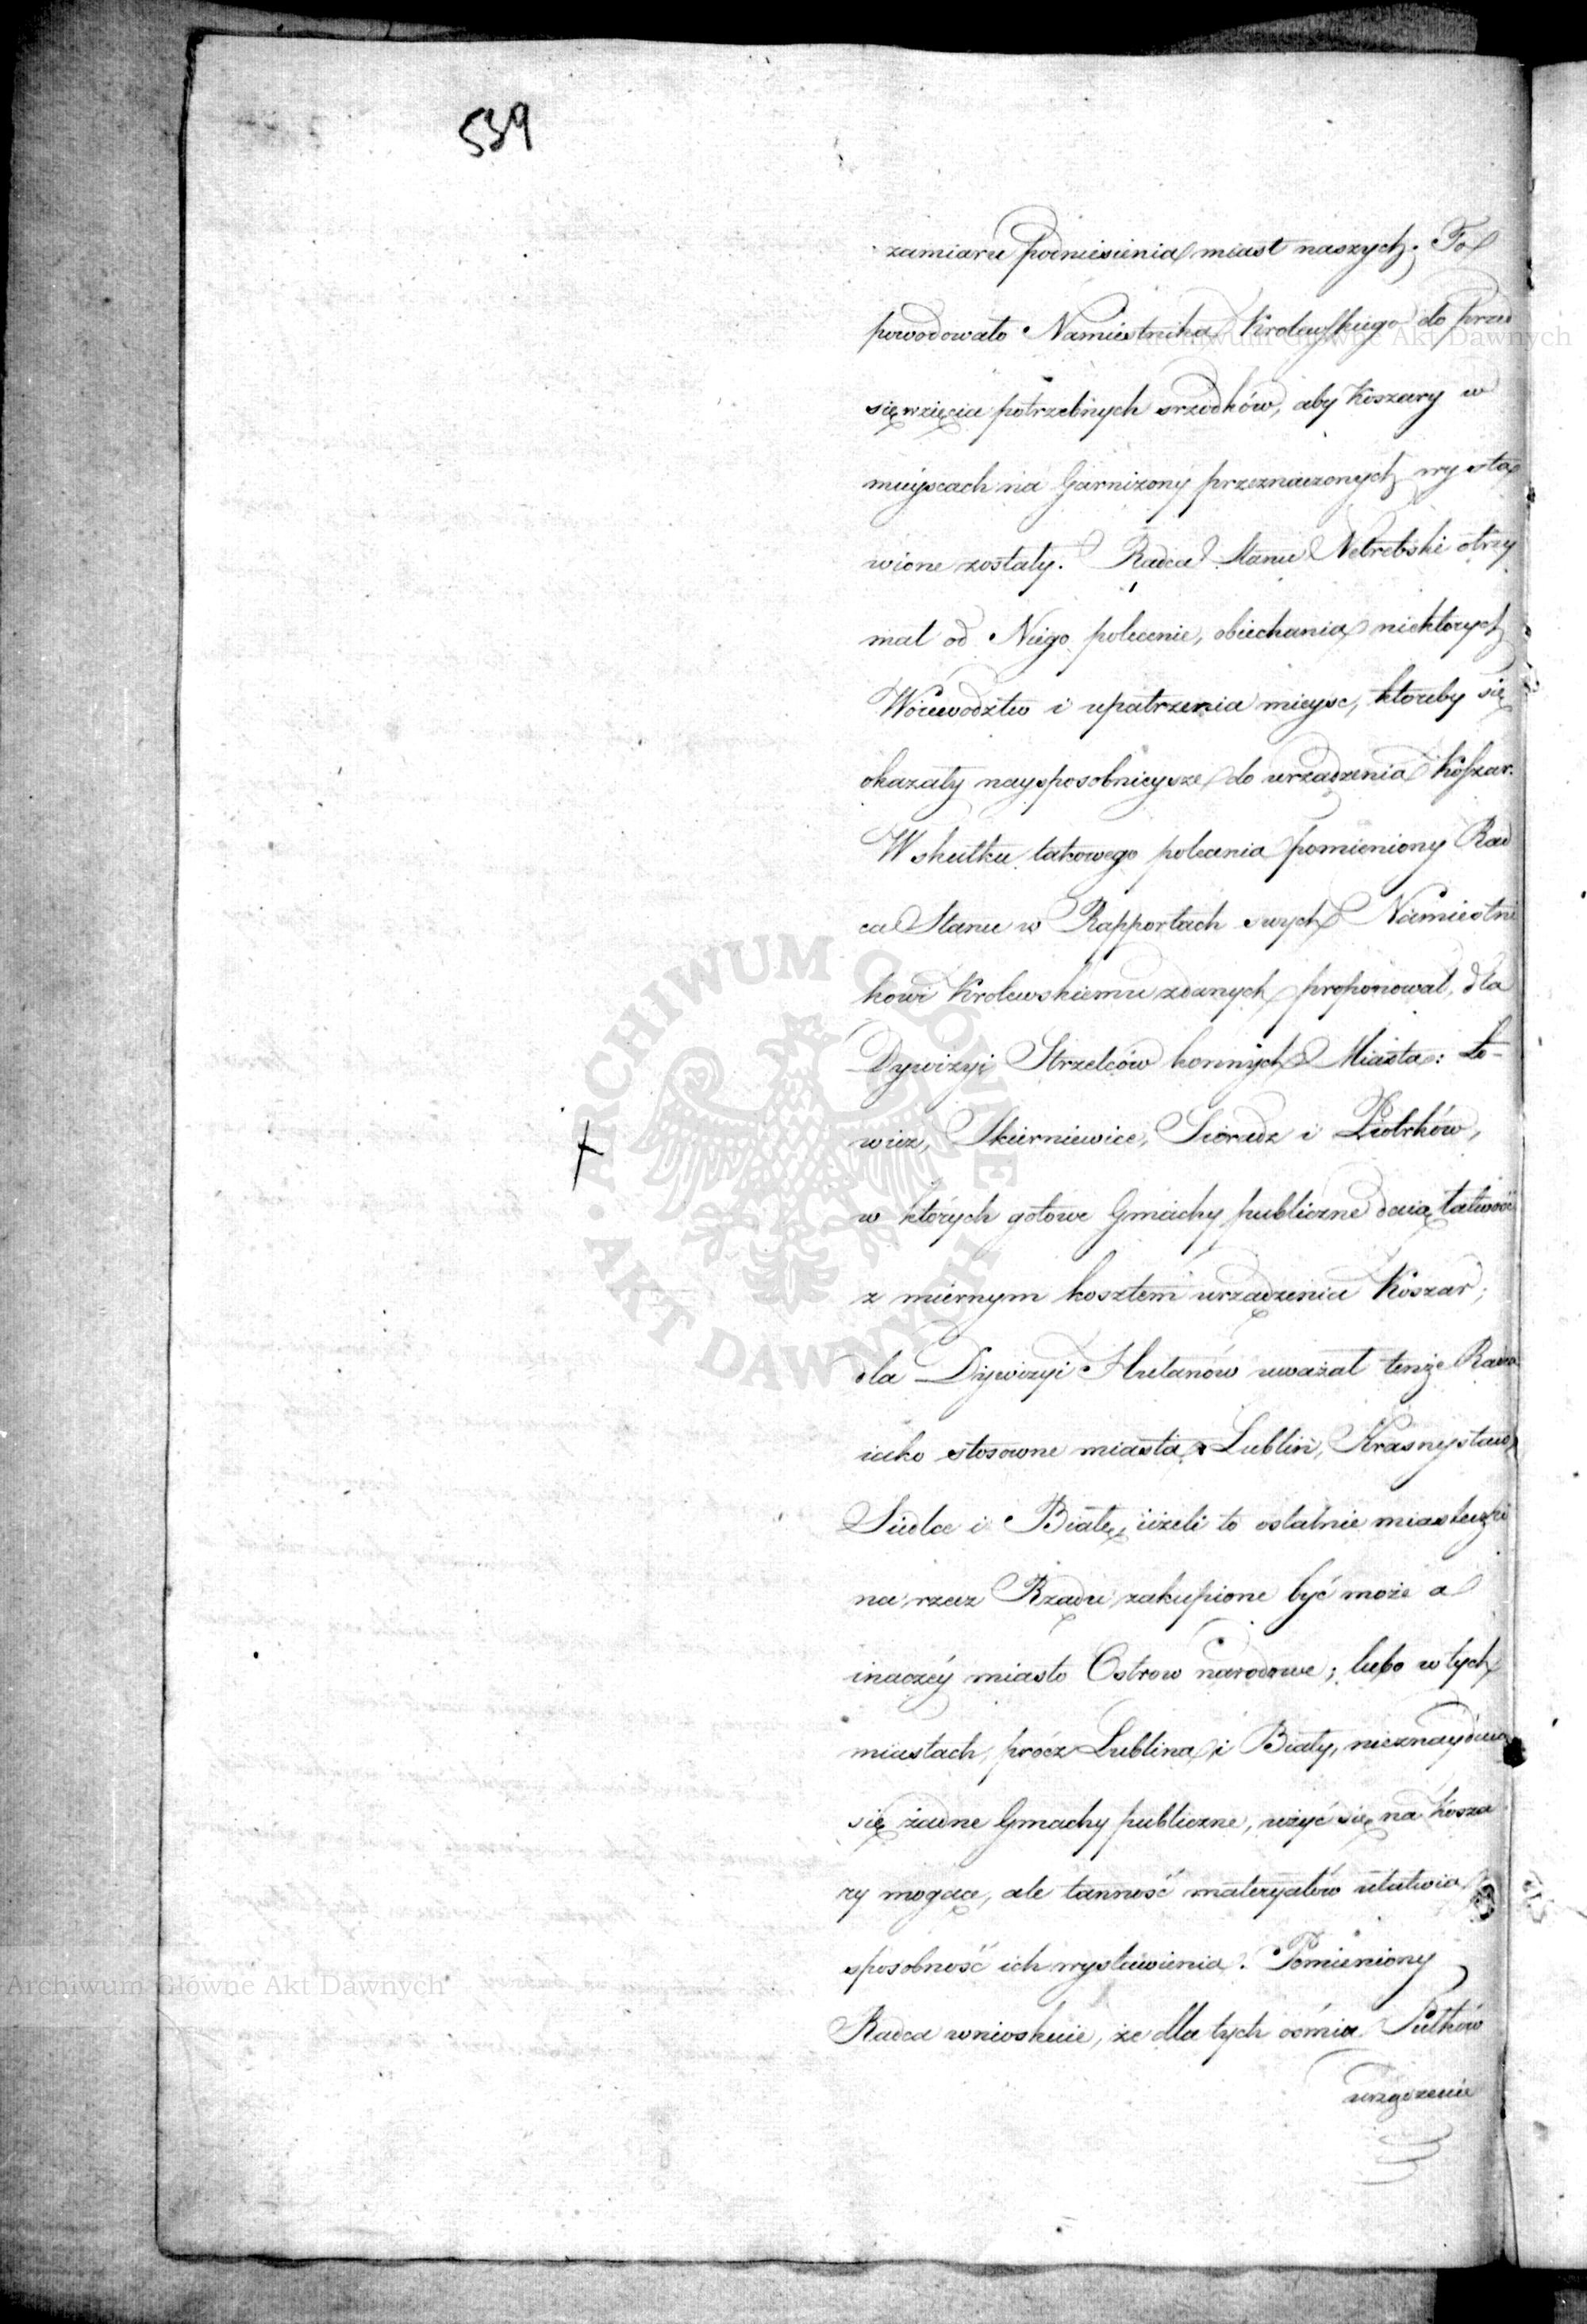 539
zamiaru podniesienia miast naszych; To
powodowało Namiestnika Krolewskiego do przed
sięwzięcia potrzebnych srzodków, aby Koszary w
mieyscach na Garnizony przeznaczonych wysta
wione zostały. Radca Stanu Netrebski otrzy
mał od Niego polecenie, obiechania niektorych
Woiewodztw i upatrzenia mieysc, ktoreby się
okazały naysposobnieysze do urządzenia Koszar.
W skutku takowego polecania pomieniony Rad
ca Stanu w Rapportach swych Namiestni
kowi Krolewskiemu zdanych proponował, dla
Dywizyi Strzelców konnych Miasta: Ło-
wicz, Skierniewice, Sieradz i Piotrków,
w których gotowe Gmachy publiczne daią łatwość
z miernym kosztem urządzenia Koszar;
dla Dywizyi Hułanów uważał tenże Radca
iako stosowne miasta Lublin, Krasnystaw,
Siedlce i Białę, ieżeli to ostatnie miasteczko
na rzecz Rządu zakupione być może a
inaczéy miasto Ostrow narodowe; lubo w tych
miastach, prócz Lublina i Biały, nieznayduią
się żadne Gmachy publiczne, użyć się na Kosza
ry mogące, ale tanność materyałów ułatwia
sposobność ich wystawienia. Pomieniony
Radca wnioskuie, że dla tych ośmiu Pułków
urządzenie
Archiwum Główne Akt Dawnych
Archiwum Główne Akt Dawnych
ARCHIWUM GŁÓWNE AKT DAWNYCH